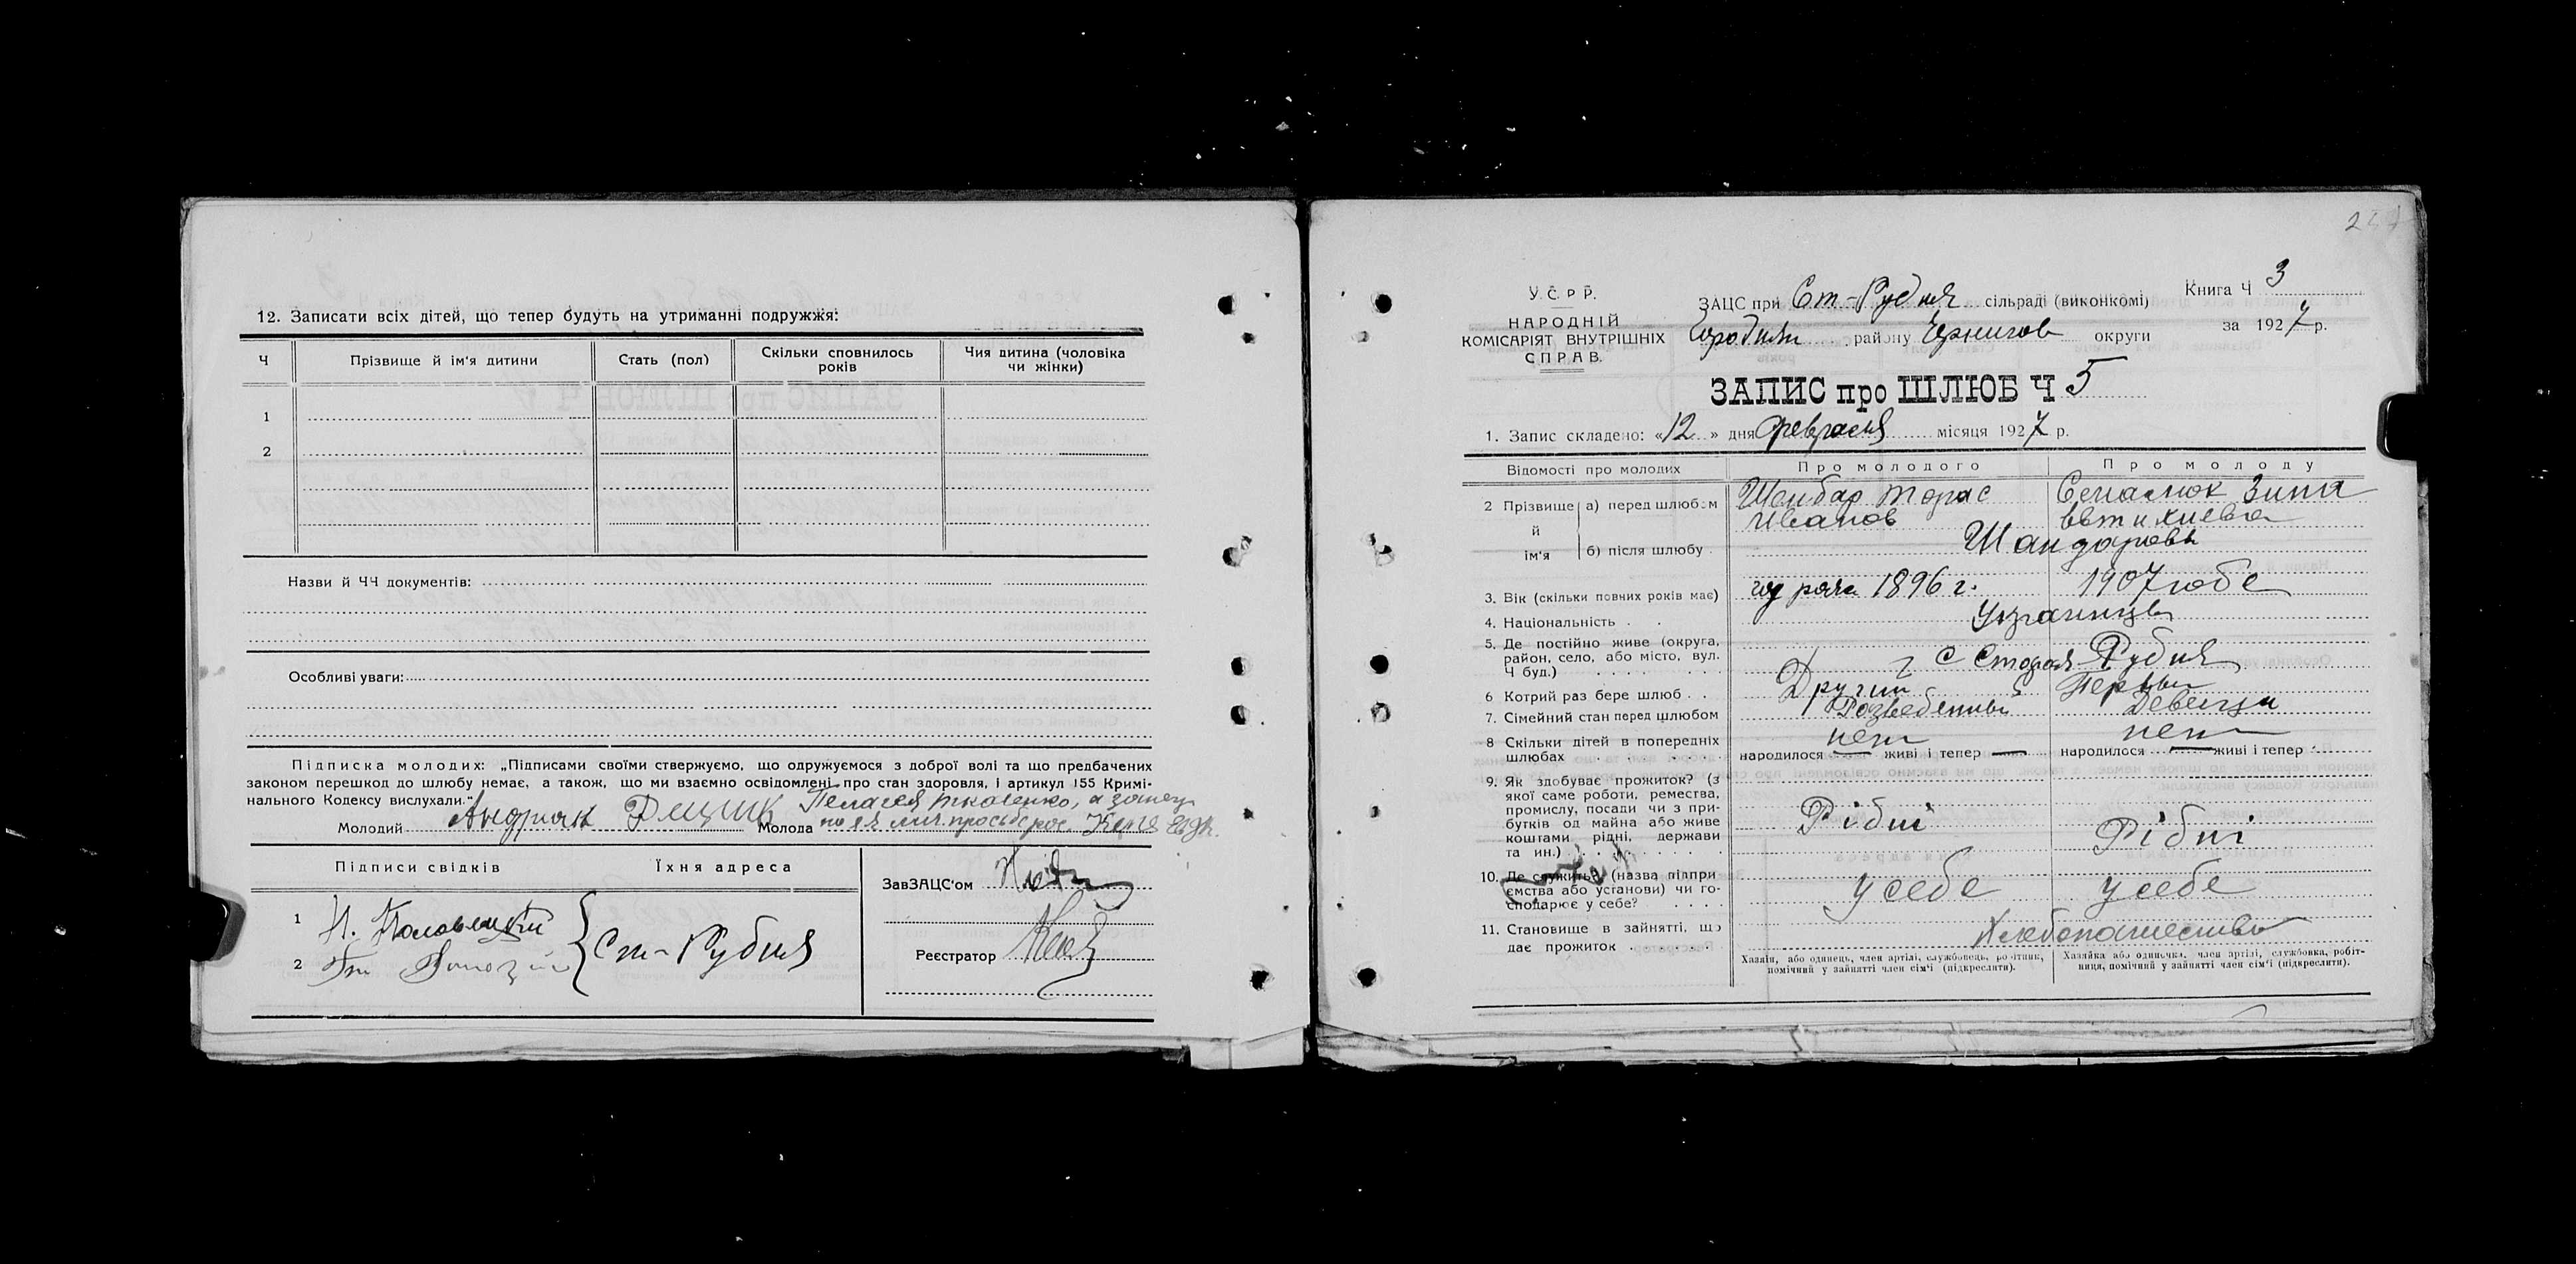 12. Записати всіх дітей, що тепер будуть на утриманні подружжя:
Ч Прізвище й ім'я дитини Стать (пол) Скільки сповнилось років Чия дитина (чоловіка чи жінки)
1
2
Назви й ЧЧ документів:
Особливі уваги:
Підписка молодих: „Підписами своїми ствержуємо, що одружуємося з доброї волі та що предбачених
законом перешкод до шлюбу немає, а також, що ми взаємно освідомлені про стан здоровля, і артикул 155 Кримі-
нального Кодексу вислухали."
Молодий Андриан Молода Пелагея Ткаченко, а за нею
по ея лич. просьбе рос.
Підписи свідків Їхня адреса
1 И. Половецкий
2
Ст-Рудня
ЗавЗАЦС'ом
Реєстратор
У.С.Р.Р.
НАРОДНІЙ
КОМІСАРІЯТ ВНУТРІШНІХ
СПРАВ.
ЗАЦС при Ст-Рудня сільраді (виконкомі)
Городнян району Чернигов округи
Книга Ч 3
за 1927 р.
ЗАПИС про ШЛЮБ Ч 5
1. Запис складено: «12» дня Февраля місяця 1927 р.
Відомості про молодих Про молодого Про молоду
2 Прізвище й ім'я а) перед шлюбом Тарас Иванов Зина
б) після шлюбу
3. Вік (скільки повних років має) 1896 г. 1907 годе
4. Національність Украинцы
5. Де постійно живе (округа, район, село, або місто, вул. Ч буд.) с Старая Рудня
6 Котрий раз бере шлюб Другий Первый
7. Сімейний стан перед шлюбом Разведенный Девица
8 Скільки дітей в попередніх шлюбах нет нет
народилося — живі і тепер — народилося — живі і тепер
9. Як здобуває прожиток? (з якої саме роботи, ремества, промислу, посади чи з прибутків од майна або живе коштами рідні, держави та ин.) Рідні Рідні
10. Де служить (назва підприємства або установи) чи господарює у себе? у себе у себе
11. Становище в зайнятті, що дає прожиток Хлебопашество
Хазяїн, або одинець, член артілі, службовець, робітник, помічний у зайнятті член сім'ї (підкреслити).
Хазяйка або одиначка, член артілі, службовка, робітниця, помічний у зайнятті член сім'ї (підкреслити).